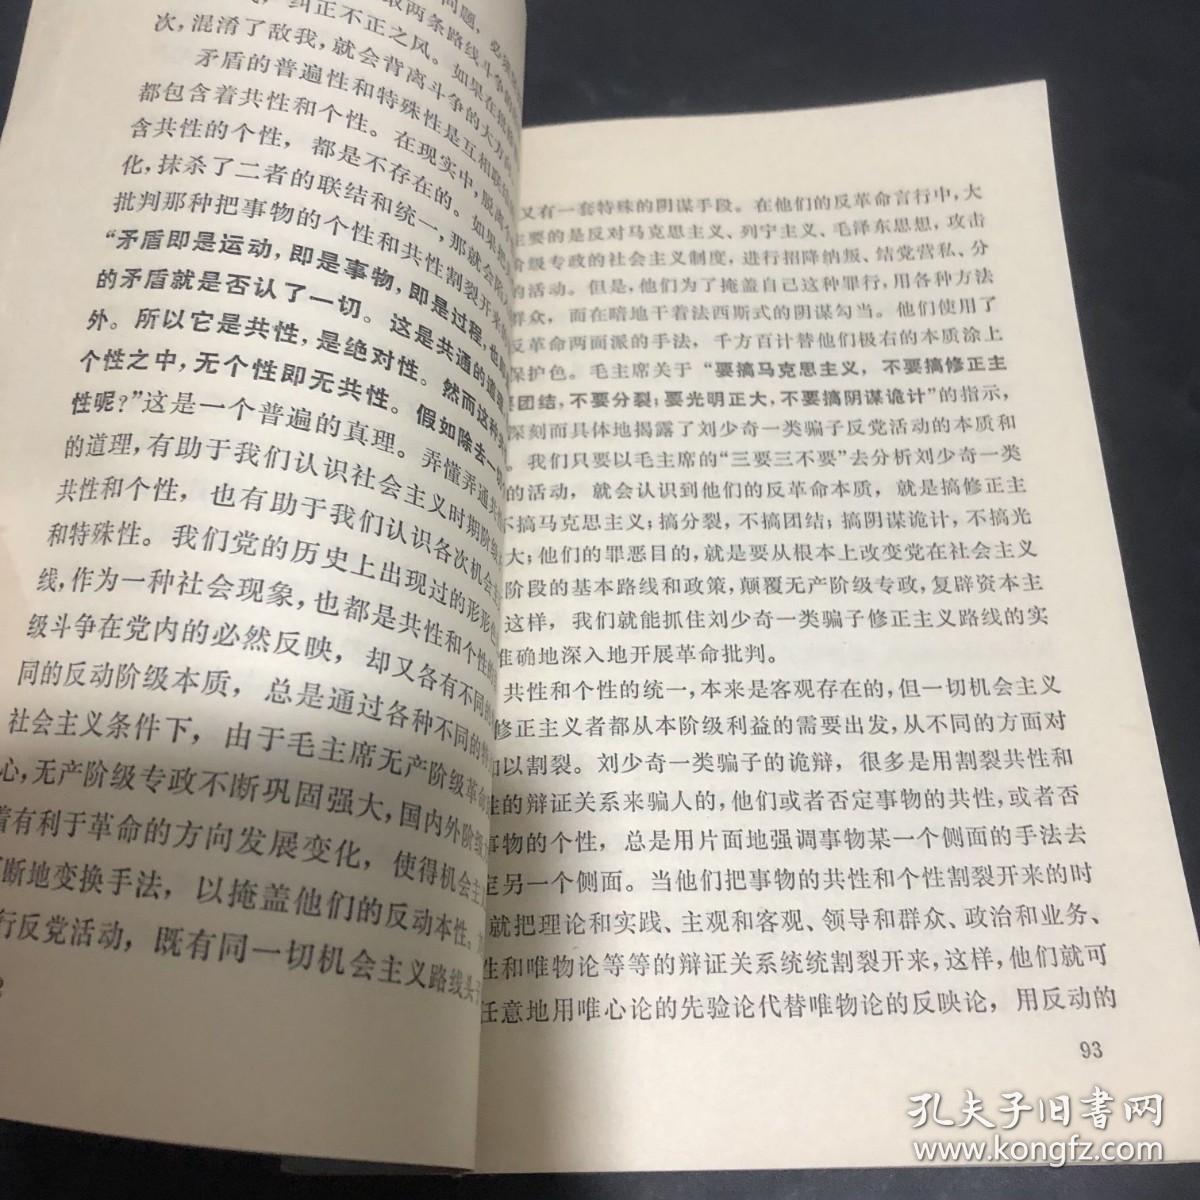 问题，必须
取两条路线斗争的
纠正不正之风。如果在
次，混淆了敌我，就会背离斗争的大方向
矛盾的普遍性和特殊性是互相联
都包含着共性和个性。在现实中，脱离
含共性的个性，都是不存在的。如果把
化，抹杀了二者的联结和统一，那就会陷
批判那种把事物的个性和共性割裂开来
“矛盾即是运动，即是事物，即是过程，也
的矛盾就是否认了一切。这是共通的道理
外。所以它是共性，是绝对性。然而这种
个性之中，无个性即无共性。假如除去一
性呢？”这是一个普遍的真理。弄懂弄通共
的道理，有助于我们认识社会主义时期阶级
共性和个性，也有助于我们认识各次机会主
和特殊性。我们党的历史上出现过的形形色
线，作为一种社会现象，也都是共性和个性的
级斗争在党内的必然反映，却又各有不同的
同的反动阶级本质，总是通过各种不同的特
社会主义条件下，由于毛主席无产阶级革命
心，无产阶级专政不断巩固强大，国内外阶级
着有利于革命的方向发展变化，使得机会主
断地变换手法，以掩盖他们的反动本性。
行反党活动，既有同一切机会主义路线头子
2
又有一套特殊的阴谋手段。在他们的反革命言行中，大
主要的是反对马克思主义、列宁主义、毛泽东思想，攻击
阶级专政的社会主义制度，进行招降纳叛、结党营私、分
的活动。但是，他们为了掩盖自己这种罪行，用各种方法
群众，而在暗地干着法西斯式的阴谋勾当。他们使用了
反革命两面派的手法，千方百计替他们极右的本质涂上
保护色。毛主席关于“要搞马克思主义，不要搞修正主
要团结，不要分裂；要光明正大，不要搞阴谋诡计”的指示，
深刻而具体地揭露了刘少奇一类骗子反党活动的本质和
。我们只要以毛主席的“三要三不要”去分析刘少奇一类
的活动，就会认识到他们的反革命本质，就是搞修正主
不搞马克思主义；搞分裂，不搞团结；搞阴谋诡计，不搞光
大；他们的罪恶目的，就是要从根本上改变党在社会主义
阶段的基本路线和政策，颠覆无产阶级专政，复辟资本主
这样，我们就能抓住刘少奇一类骗子修正主义路线的实
准确地深入地开展革命批判。
共性和个性的统一，本来是客观存在的，但一切机会主义
修正主义者都从本阶级利益的需要出发，从不同的方面对
加以割裂。刘少奇一类骗子的诡辩，很多是用割裂共性和
性的辩证关系来骗人的，他们或者否定事物的共性，或者否
事物的个性，总是用片面地强调事物某一个侧面的手法去
定另一个侧面。当他们把事物的共性和个性割裂开来的时
就把理论和实践、主观和客观、领导和群众、政治和业务、
性和唯物论等等的辩证关系统统割裂开来，这样，他们就可
任意地用唯心论的先验论代替唯物论的反映论，用反动的
93
孔夫子旧书网
www.kongfz.com